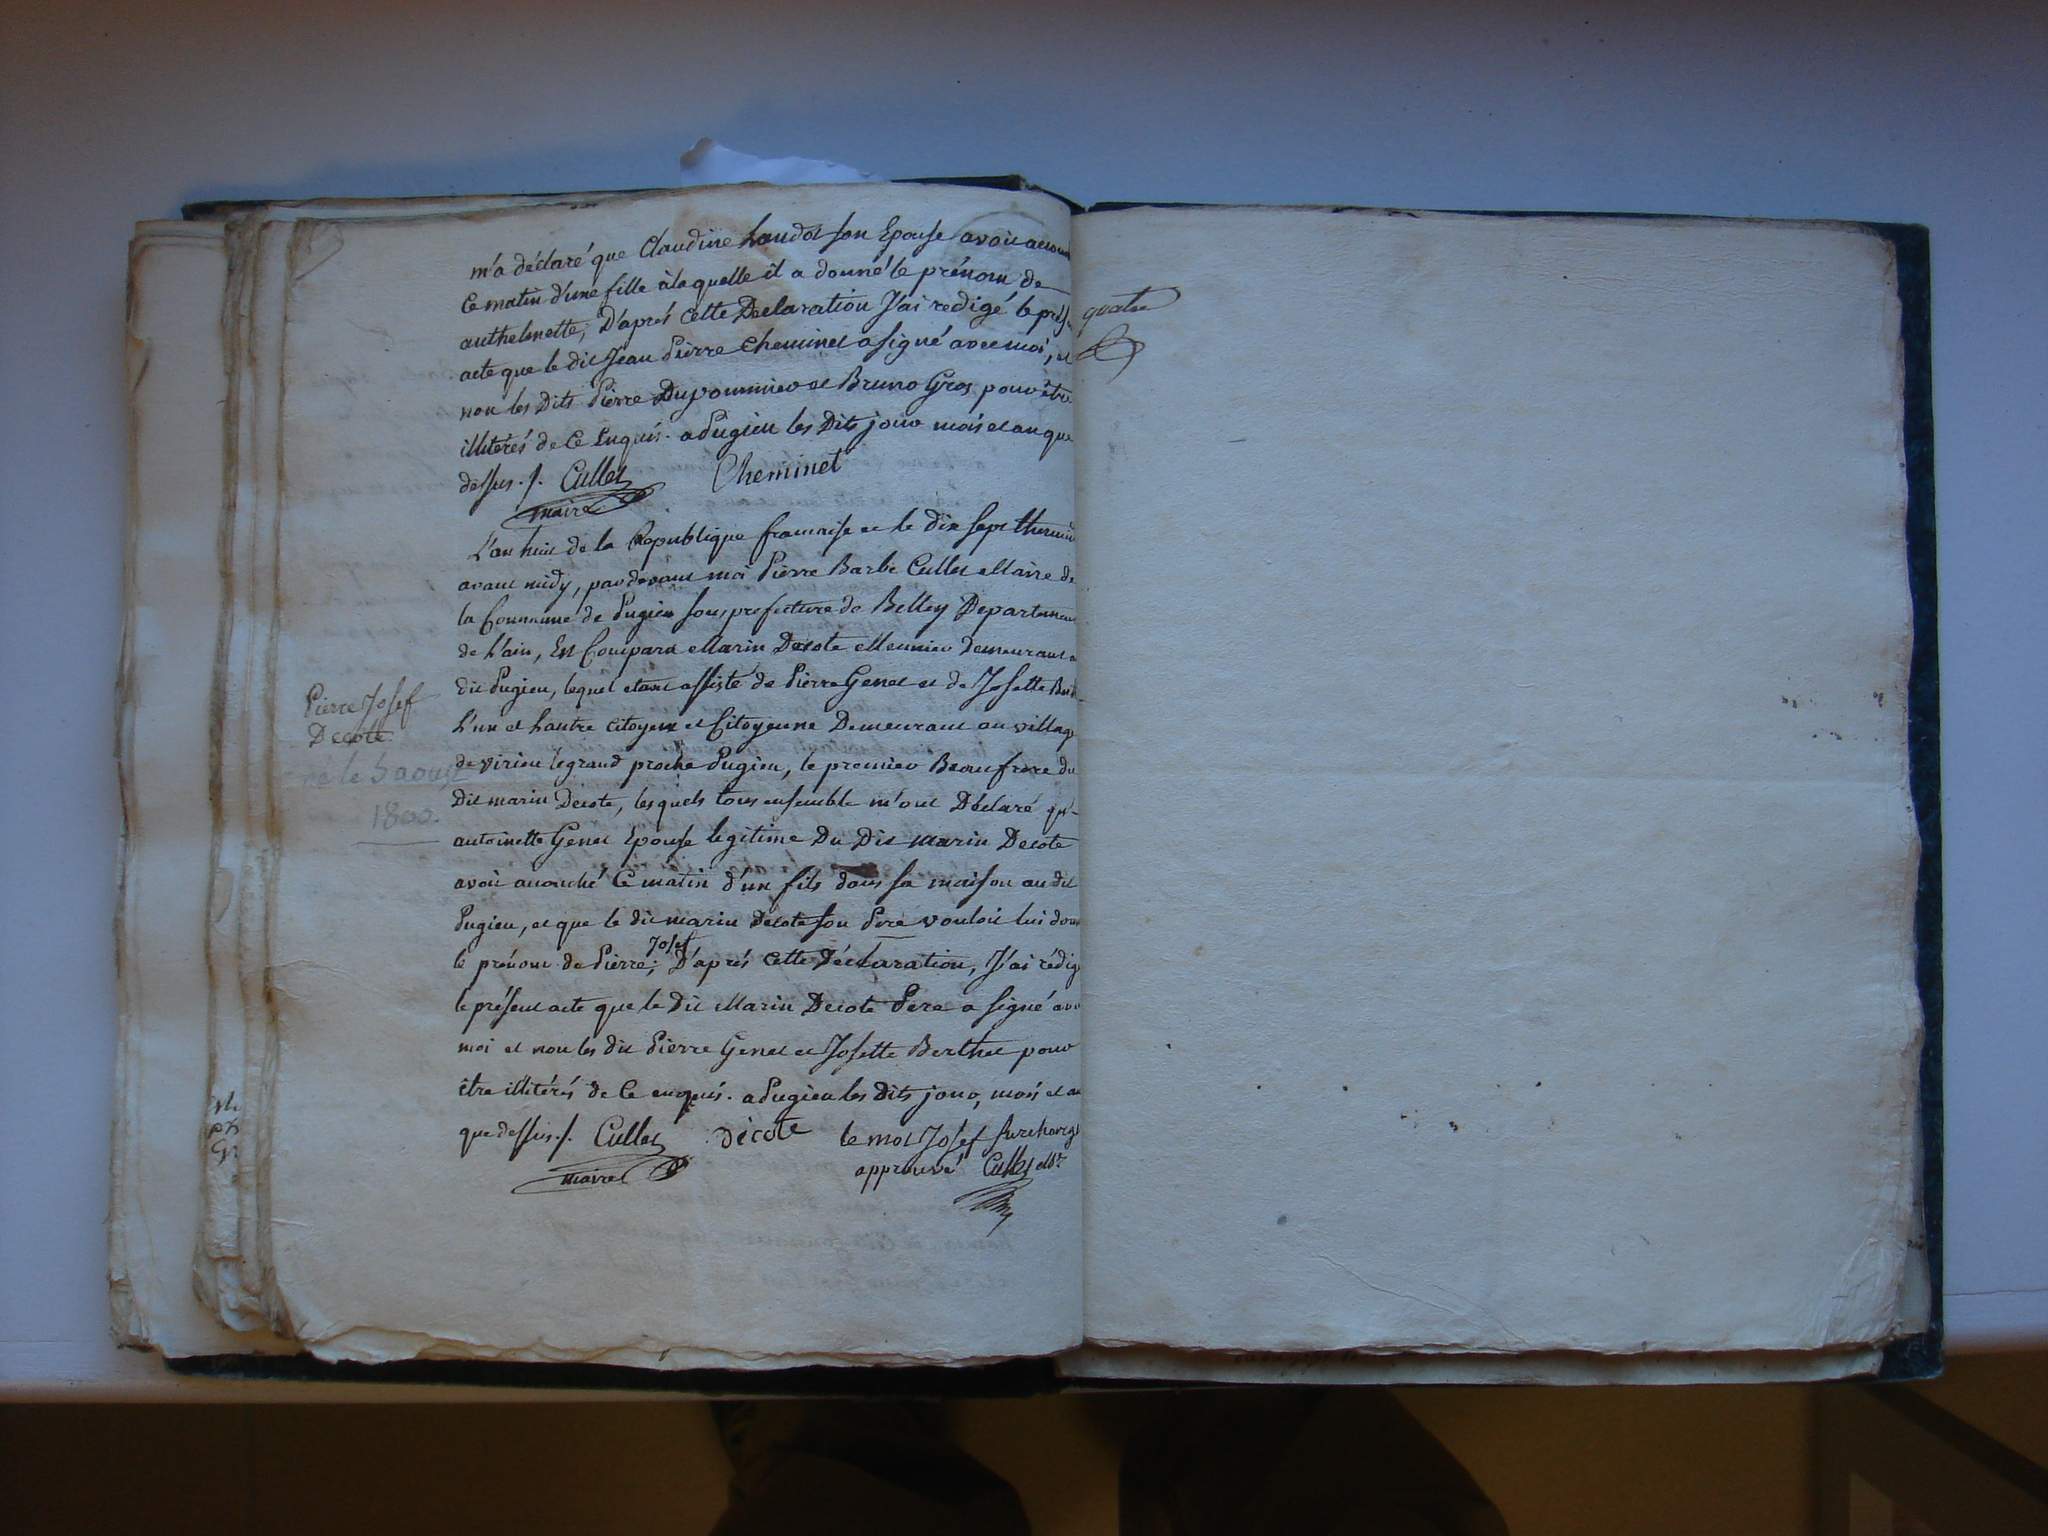 m'a déclaré que Claudine Landot son Epouse avoit accou
Ce matin d'une fille à la quelle il a donné le prénom de
anthelmette; D'aprés cette Declaration J'ai redigé le prés
quatre
acte que le dit Jean Pierre Cheminet a signé avec moi, et
non les Dits Pierre Dupommier et Bruno Gros pour être
illitérés de Ce Enquis. a Pugieu les Dits jour mois et an que
dessus. /. Cullet Cheminet
maire
L'an huit de la Republique francaise et le dix sept thermid
avant midy, pardevant moi Pierre Barbe Cullet Maire de
la Commune de Pugieu sous prefecture de Belley Departement
de L'ain, Est Comparu Marin Decote Meunier Demeurant a
dit Pugieu, lequel etant assisté de Pierre Genet et de Josette
L'un et Lautre citoyen et Citoyenne Demeurant au village
de virieu legrand proche Pugieu, le premier Beaufrere du
Dit marin Decote, les quels tous ensemble m'ont Déclaré qu'
antoinette Genet Epouse legitime Du Dit marin Decote
avoit accouché Ce matin d'un fils dans sa maison au dit
Pugieu, et que le dit marin Decote son Pere vouloit lui don
le prénom de Pierre; Josef D'aprés cette Déclaration, J'ai rédig
le présent acte que le Dit Marin Decote Pere a signé ave
moi et non les dit Pierre Genet et Josette Berthet pour
être illitérés de Ce enquis. a Pugieu les Dits jour, mois et an
que dessus. /. Cullet décote le mot Josef surchargé
maire approuvé Cullet Mre
Pierre Josef
Decote
né le 5 aoust
1800.